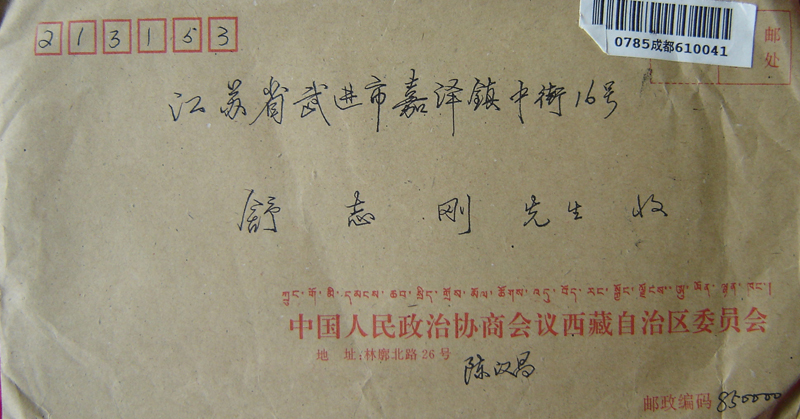 213153
0785成都610041
邮
处
江苏省武进市嘉泽镇中街16号
舒志刚先生 收
ཀྲུང་གོ་མི་དམངས་ཆབ་སྲིད་གྲོས་མོལ་ཚོགས་འདུ་བོད་རང་སྐྱོང་ལྗོངས་ཨུ་ཡོན་ལྷན་ཁང་།
中国人民政治协商会议西藏自治区委员会
地 址:林廓北路26号
陈汉昌
邮政编码 850000